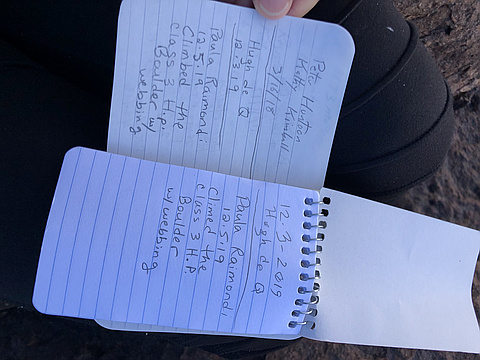 Pete Huntoon
Kathy Kimball
3/16/18
Hugh de Q
12.3.19
Paula Raimondi
12.5.19
Climbed the
class 3 H.P.
Boulder w/
webbing
12-3-2019
Hugh de Q
Paula Raimondi
12.5.19
Climed the
class 3 H.P.
Boulder
w/webbing